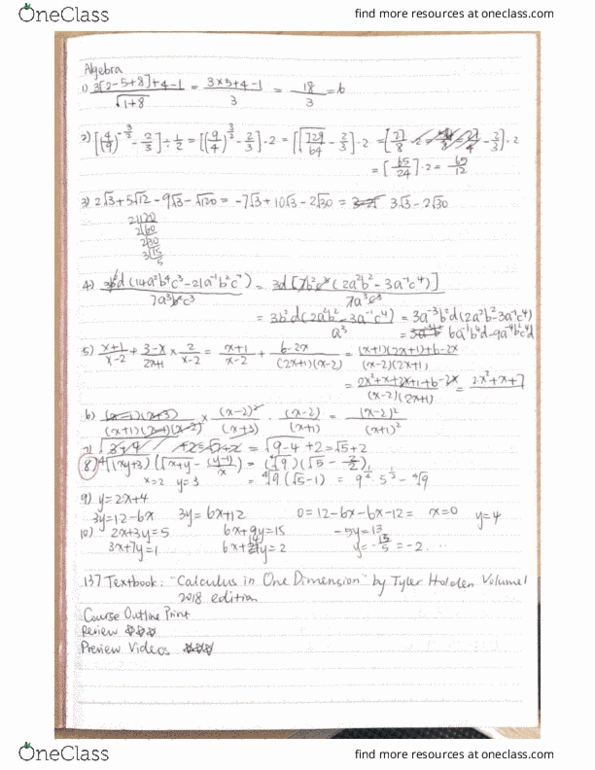 OneClass
find more resources at oneclass.com
Algebra
1) 3[2-5+8]+4-1 / √(1+8) = 3×5+4-1 / 3 = 18/3 = 6
2) [(4/9)^(-3/2) - 2/3] ÷ 1/2 = [(9/4)^(3/2) - 2/3]·2 = [√(729/64) - 2/3]·2 = [27/8 - 2/3]·2
= [65/24]·2 = 65/12
3) 2√3 + 5√12 - 9√3 - √120 = -7√3 + 10√3 - 2√30 = 3√3 - 2√30
2|120
2|60
2|30
3|15
5
4) 3b²d(14a²b⁴c³ - 21a⁻¹b²c⁷) / 7a³b²c³ = 3d[7b²c³(2a²b² - 3a⁻¹c⁴)] / 7a³c³
= 3b²d(2a²b² - 3a⁻¹c⁴) / a³ = 3a⁻³b²d(2a²b² - 3a⁻¹c⁴)
= 6a⁻¹b⁴d - 9a⁻⁴b²c⁴d
5) x+1/x-2 + 3-x/2x+1 × 2/x-2 = x+1/x-2 + 6-2x/(2x+1)(x-2) = (x+1)(2x+1)+6-2x / (x-2)(2x+1)
= 2x²+x+2x+1+6-2x / (x-2)(2x+1) = 2x²+x+7
6) (x-1)(x+3) / (x+1)(x-1)(x-2) × (x-2)² / (x+3) · (x-2)/(x+1) = (x-2)² / (x+1)²
7) = √9-4 +2 = √5+2
8) ⁴√(xy+3) (√x+y - (y-1)/x) = (⁴√9)(√5 - 2/2)
x=2 y=3 = ⁴√9(√5-1) = 9^(1/4)·5^(1/2) - ⁴√9
9) y=2x+4
3y=12-6x 3y=6x+12 0=12-6x-6x-12= x=0 y=4
10) 2x+3y=5 6x+9y=15 -5y=13
3x+7y=1 6x+14y=2 y=-13/5=-2...
137 Textbook: "Calculus in One Dimension" by Tyler Holden Volume 1
2018 edition
Course Outline Print
Review ☆☆☆
Preview Videos ☆☆☆
OneClass
find more resources at oneclass.com